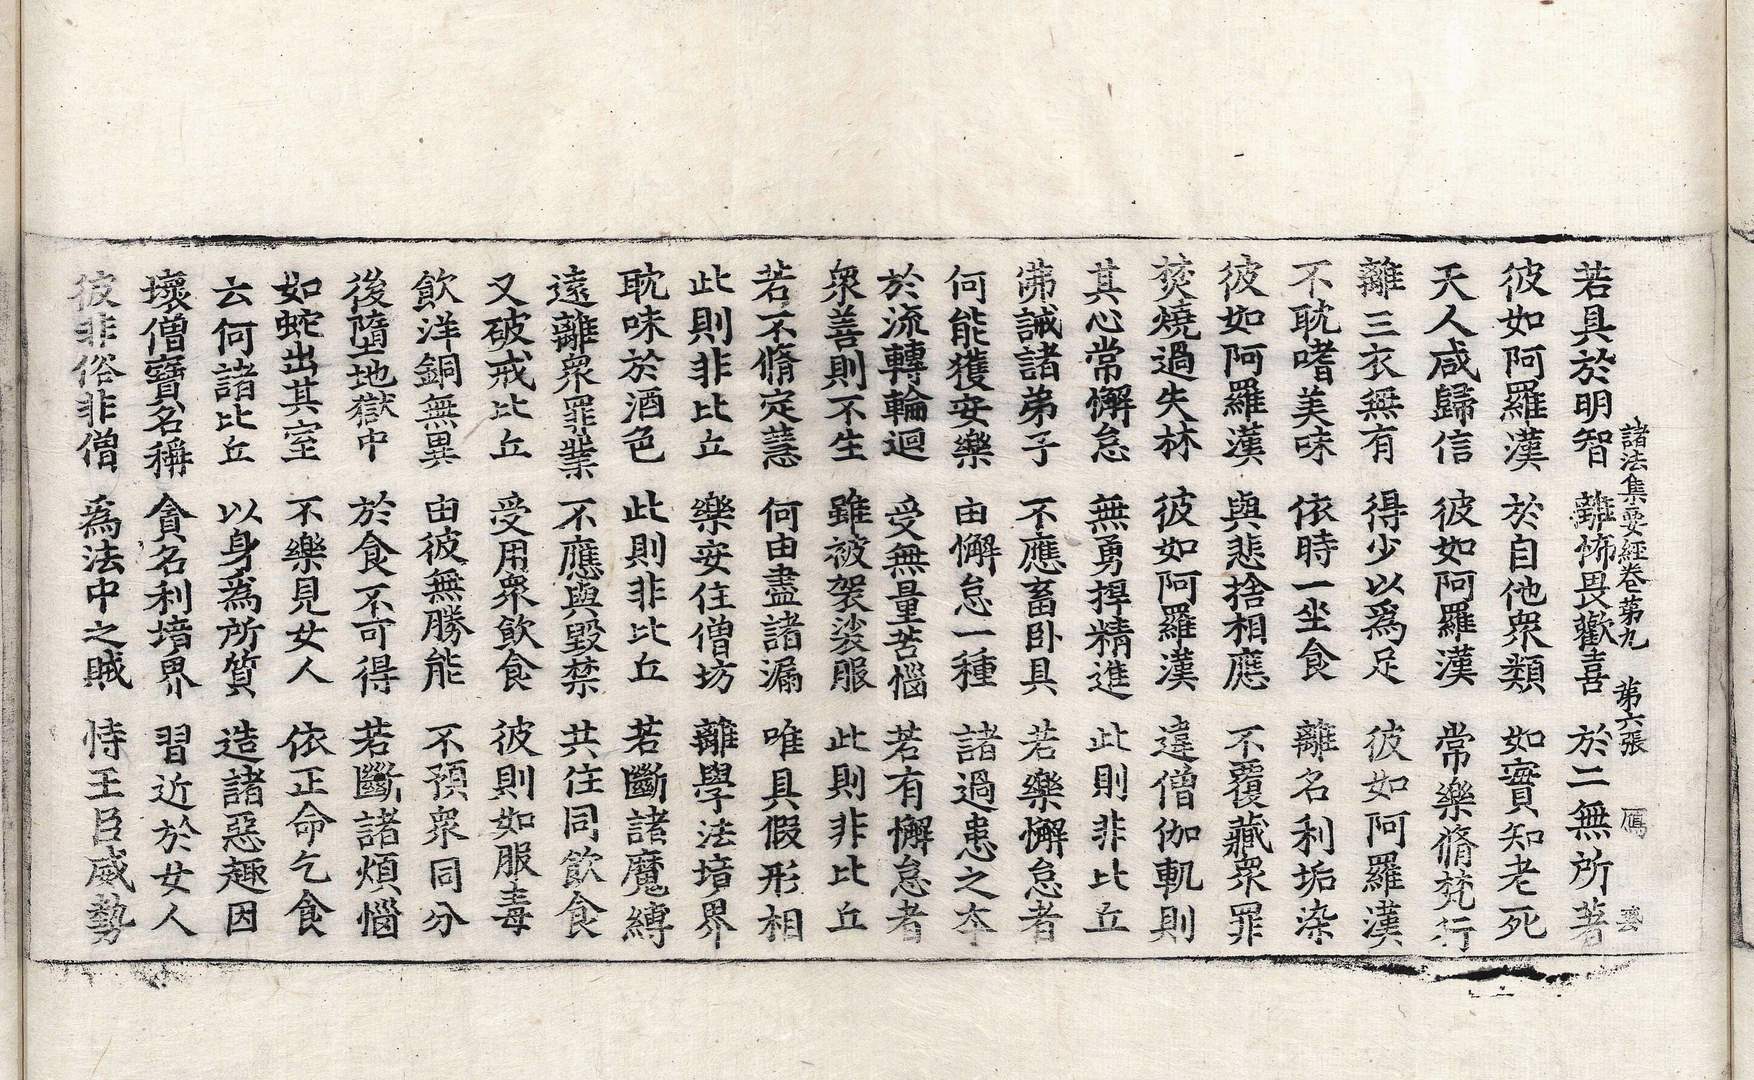 諸法集要經卷第九 第六張 鴈
若具於明智 離怖畏歡喜 於二無所著
彼如阿羅漢 於自他衆類 如實知老死
天人咸歸信 彼如阿羅漢 常樂脩梵行
離三衣無有 得少以爲足 彼如阿羅漢
不耽嗜美味 依時一坐食 離名利垢染
彼如阿羅漢 與悲捨相應 不覆藏衆罪
焚燒過失林 彼如阿羅漢 違僧伽軌則
其心常懈怠 無勇捍精進 此則非比丘
佛誡諸弟子 不應畜卧具 若樂懈怠者
何能獲安樂 由懈怠一種 諸過患之本
於流轉輪迴 受無量苦惱 若有懈怠者
衆善則不生 雖被袈裟服 此則非比丘
若不脩定慧 何由盡諸漏 唯具假形相
此則非比丘 樂安住僧坊 離學法境界
耽味於酒色 此則非比丘 若斷諸魔縛
遠離衆罪業 不應與毀禁 共住同飲食
又破戒比丘 受用衆飲食 彼則如服毒
飲洋銅無異 由彼無勝能 不預衆同分
後墮地獄中 於食不可得 若斷諸煩惱
如蛇出其室 不樂見女人 依正命乞食
云何諸比丘 以身爲所質 造諸惡趣因
壞僧寶名稱 貪名利境界 習近於女人
彼非俗非僧 爲法中之賊 恃王臣威勢